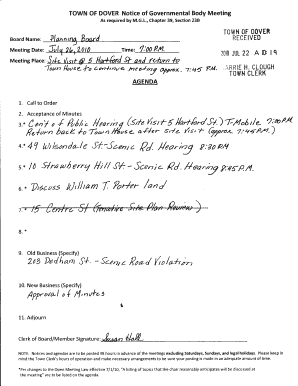 TOWN OF DOVER Notice of Governmental Body Meeting
As required by M.G.L., Chapter 39, Section 23B
TOWN OF DOVER
RECEIVED
Board Name: Planning Board
Meeting Date: July 26, 2010 Time: 7:00 P.M.
2010 JUL 22 A 10:19
Meeting Place: Site Visit @ 5 Hartford St and return to
Town House to continue meeting approx. 7:45 P.M.
CARRIE H. CLOUGH
TOWN CLERK
AGENDA
1. Call to Order
2. Acceptance of Minutes
3.* Con't of Public Hearing (Site Visit 5 Hartford St.) T-Mobile 7:00 P.M.
Return back to Town House after site visit (approx. 7:45 P.M.)
4.* 49 Wilsondale St-Scenic Rd. Hearing 8:30 P.M
5.* 10 Strawberry Hill St-Scenic Rd. Hearing 8:45 P.M.
6.* Discuss William T. Porter land
7.* 15 Centre St (Tentative Site Plan Review)
8. *
9. Old Business (Specify)
203 Dedham St. - Scenic Road Violation
10. New Business (Specify)
Approval of Minutes
11. Adjourn
Clerk of Board/Member Signature: Susan Hall
NOTE: Notices and agendas are to be posted 48 hours in advance of the meetings excluding Saturdays, Sundays, and legal holidays. Please keep in
mind the Town Clerk's hours of operation and make necessary arrangements to be sure your posting is made in an adequate amount of time.
*Per changes to the Open Meeting Law effective 7/1/10, "A listing of topics that the chair reasonably anticipates will be discussed at
the meeting" are to be listed on the agenda.